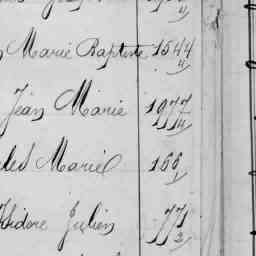 Marie Baptiste 1544
4
Jean Marie 1077
4
Marie 166
1
Isidore Julien 771
2